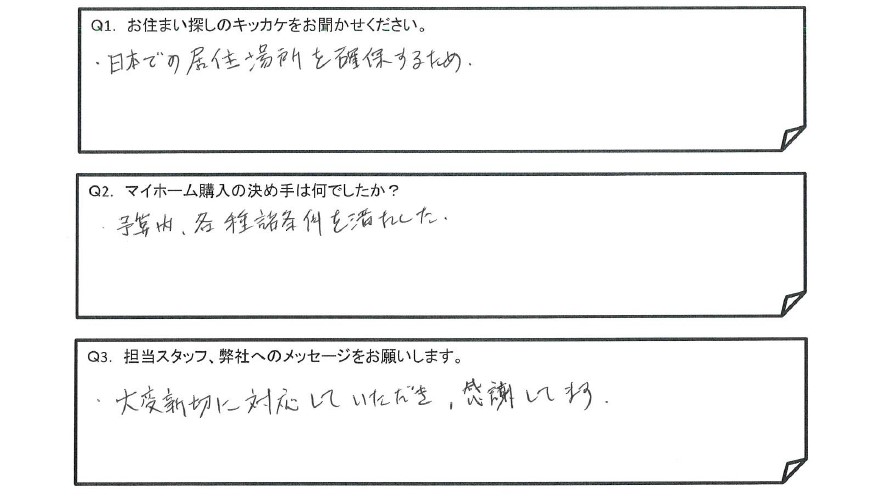 Q1. お住まい探しのキッカケをお聞かせください。
・日本での居住場所を確保するため.
Q2. マイホーム購入の決め手は何でしたか？
・予算内、各種諸条件を満たした.
Q3. 担当スタッフ、弊社へのメッセージをお願いします。
・大変親切に対応していただき, 感謝してます.